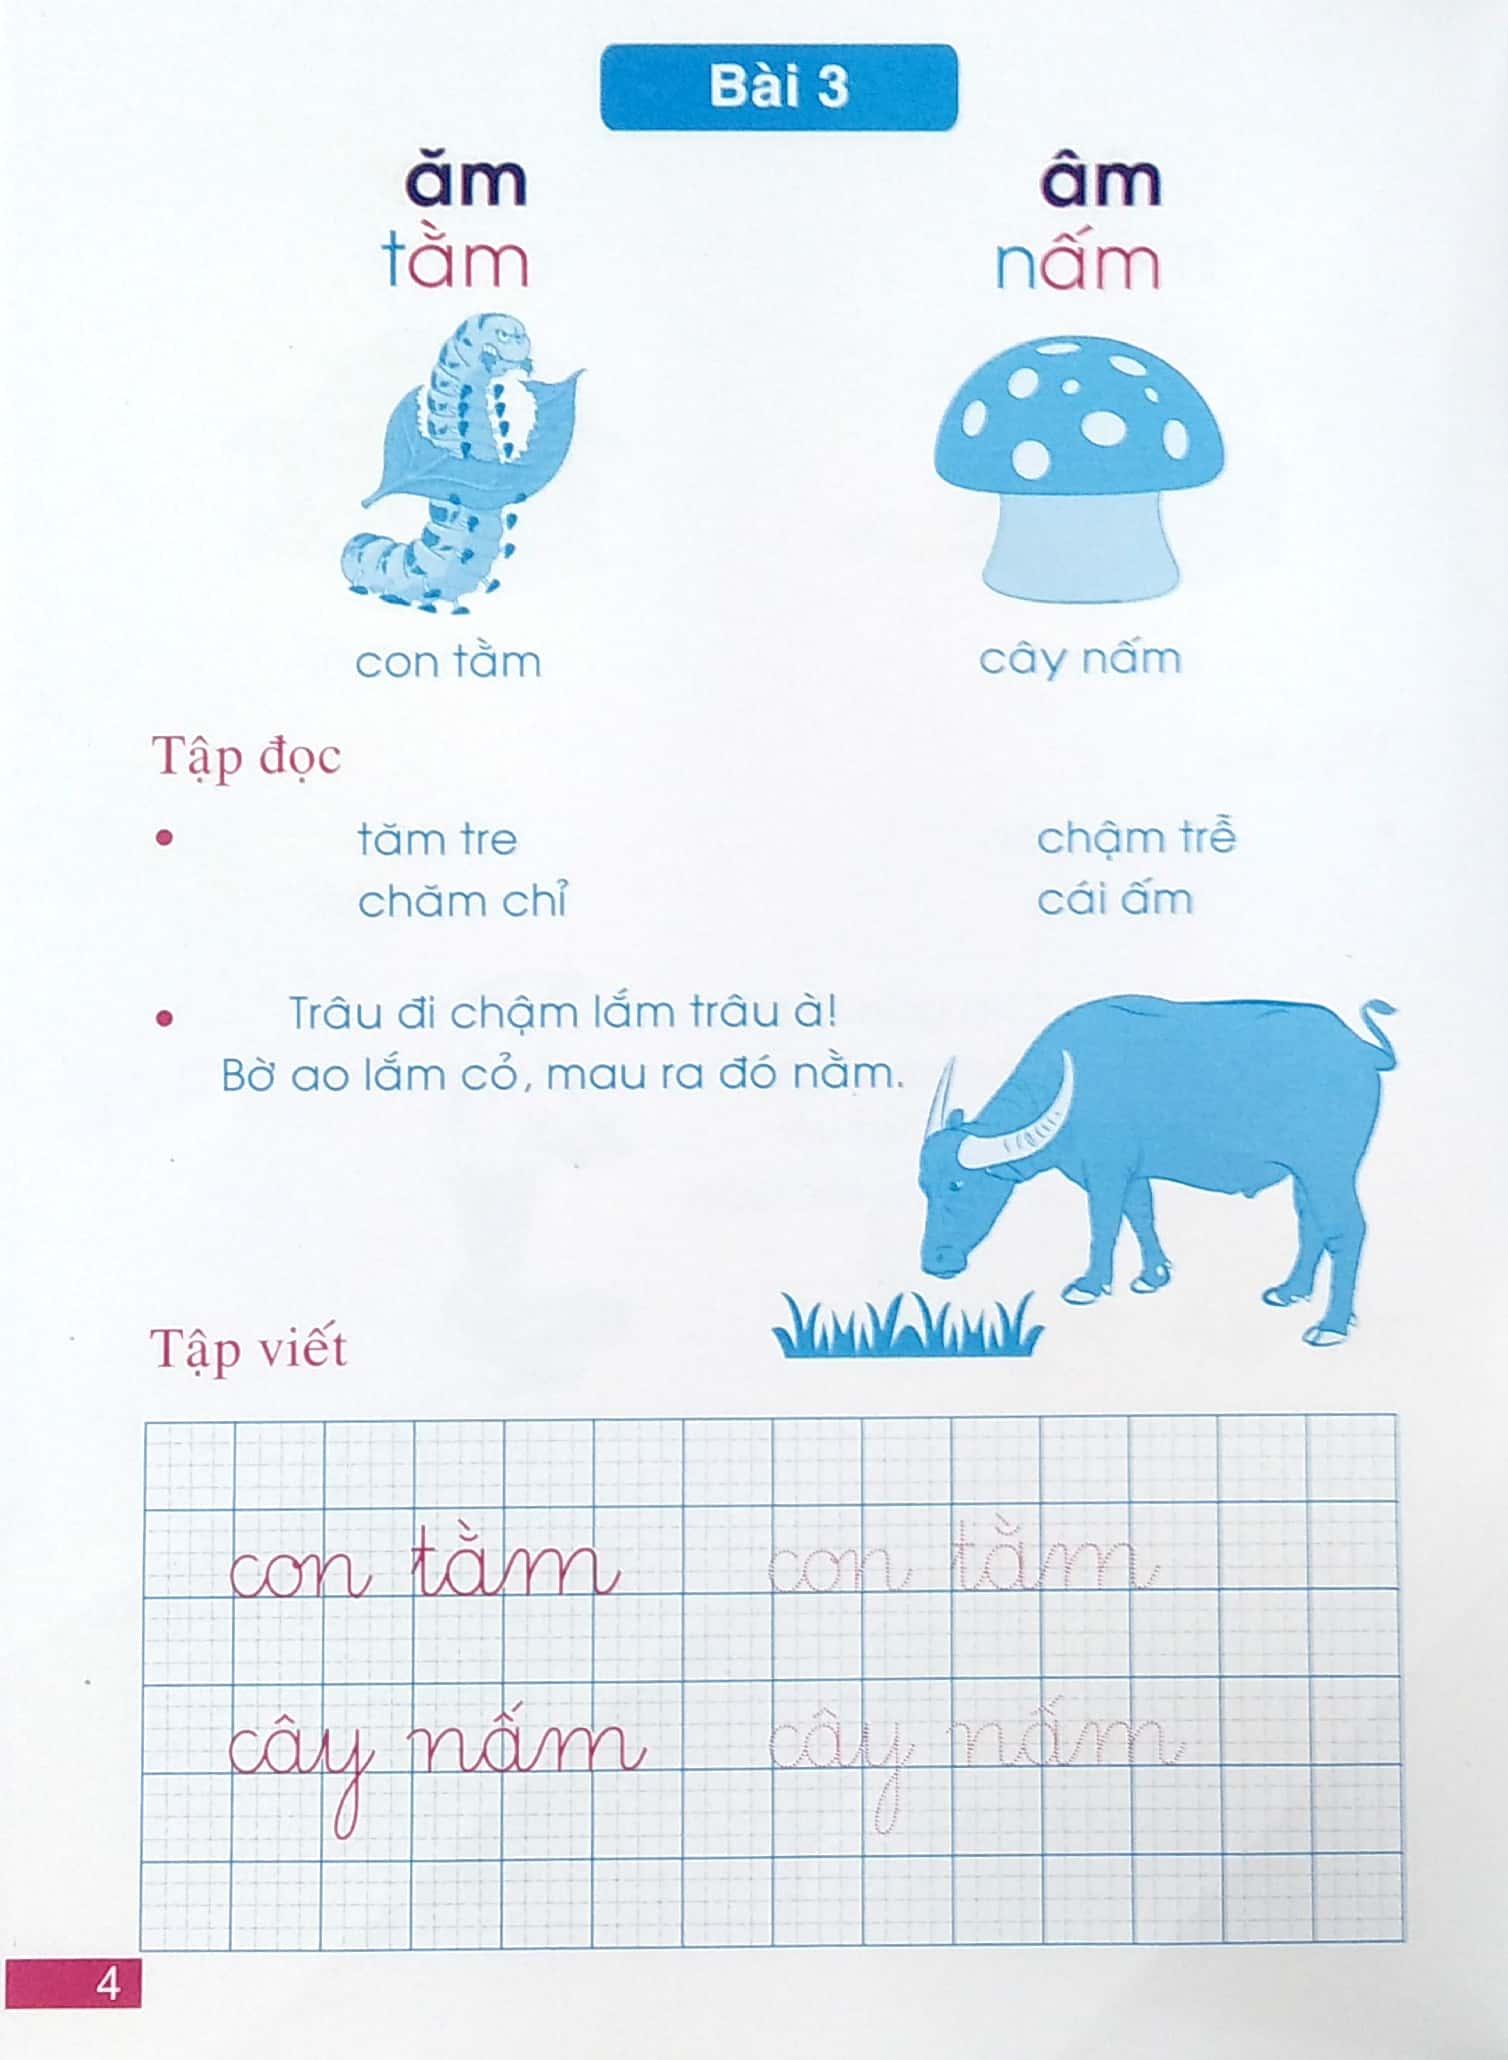 Bài 3
ăm
âm
tằm
nấm
con tằm
cây nấm
Tập đọc
tăm tre
chậm trễ
chăm chỉ
cái ấm
Trâu đi chậm lắm trâu à!
Bờ ao lắm cỏ, mau ra đó nằm.
Tập viết
con tằm con tằm
cây nấm cây nấm
4